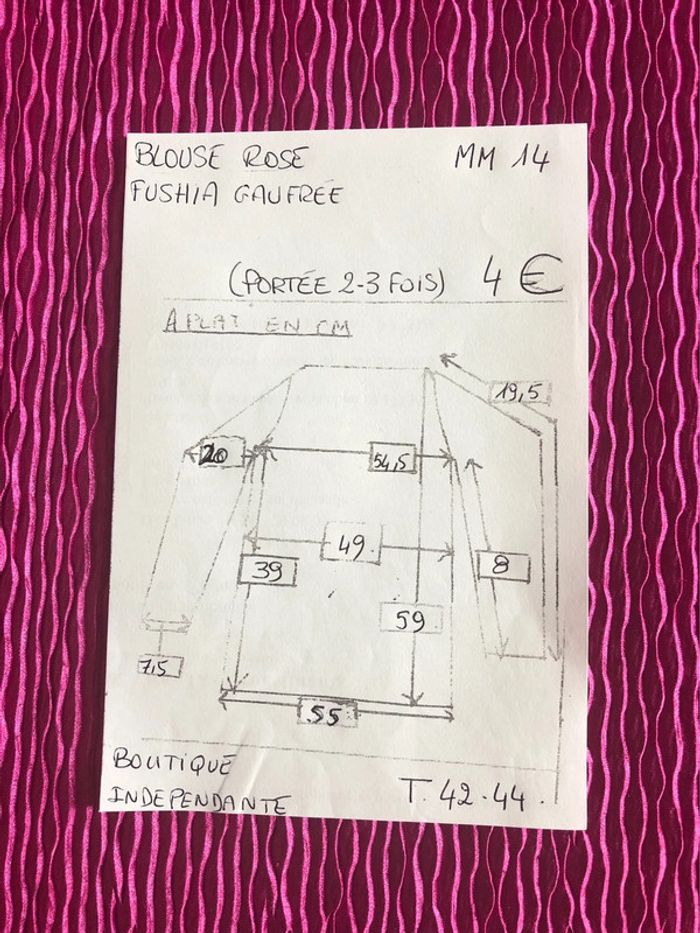 BLOUSE ROSE
MM 14
FUSHIA GAUFREE
(PORTÉE 2-3 FOIS) 4 €
A PLAT EN CM
19,5
20
54,5
49.
39
8
59
7,5
55
BOUTIQUE
INDEPENDANTE
T. 42.44.